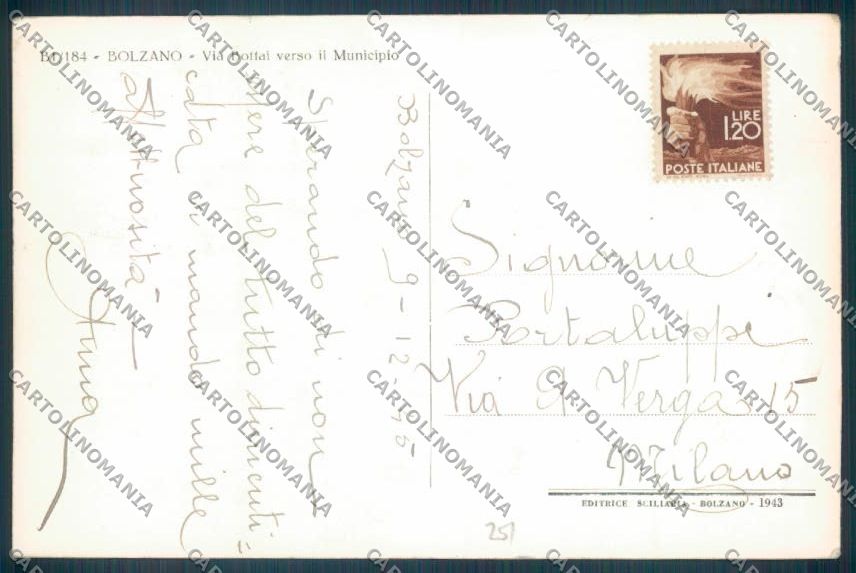 B1/184 - BOLZANO - Via Bottai verso il Municipio
LIRE
1.20
POSTE ITALIANE
Bolzano 9-12-45
Sperando di non
essere del tutto dimenti=
cata vi mando mille
affettuosità
Anna
Signorine
Portaluppi
Via G Verga 15
Milano
EDITRICE SCILIARIA - BOLZANO - 1943
251
CARTOLINOMANIA